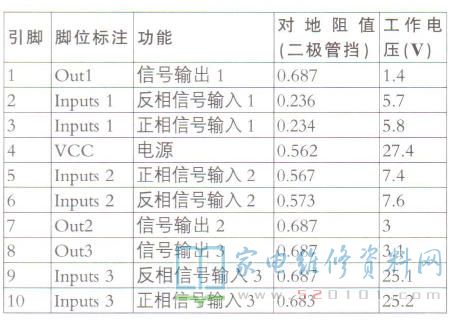 引脚 脚位标注 功能 对地阻值(二极管挡) 工作电压(V)
1 Out1 信号输出 1 0.687 1.4
2 Inputs 1 反相信号输入 1 0.236 5.7
3 Inputs 1 正相信号输入 1 0.234 5.8
4 VCC 电源 0.562 27.4
5 Inputs 2 正相信号输入 2 0.567 7.4
6 Inputs 2 反相信号输入 2 0.573 7.6
7 Out2 信号输出 2 0.687 3
8 Out3 信号输出 3 0.687 3.1
9 Inputs 3 反相信号输入 3 0.687 25.1
10 Inputs 3 正相信号输入 3 0.683 25.2
家电维修资料网
www.520101.com